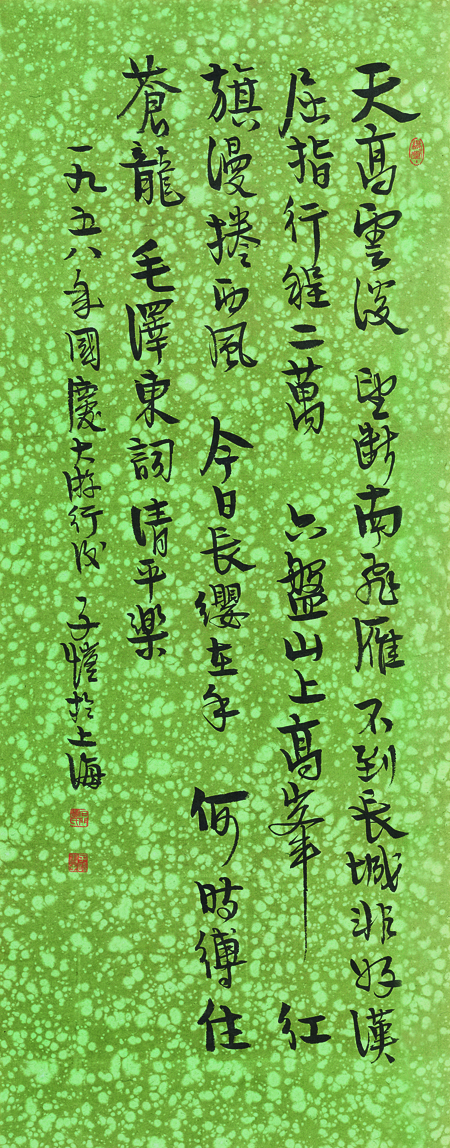 天高雲淡 望斷南飛雁 不到長城非好漢
屈指行程二萬 六盤山上高峯 紅
旗漫捲西風 今日長纓在手 何時縛住
蒼龍 毛澤東詞清平樂
一九五八年國慶大游行後 子愷於上海